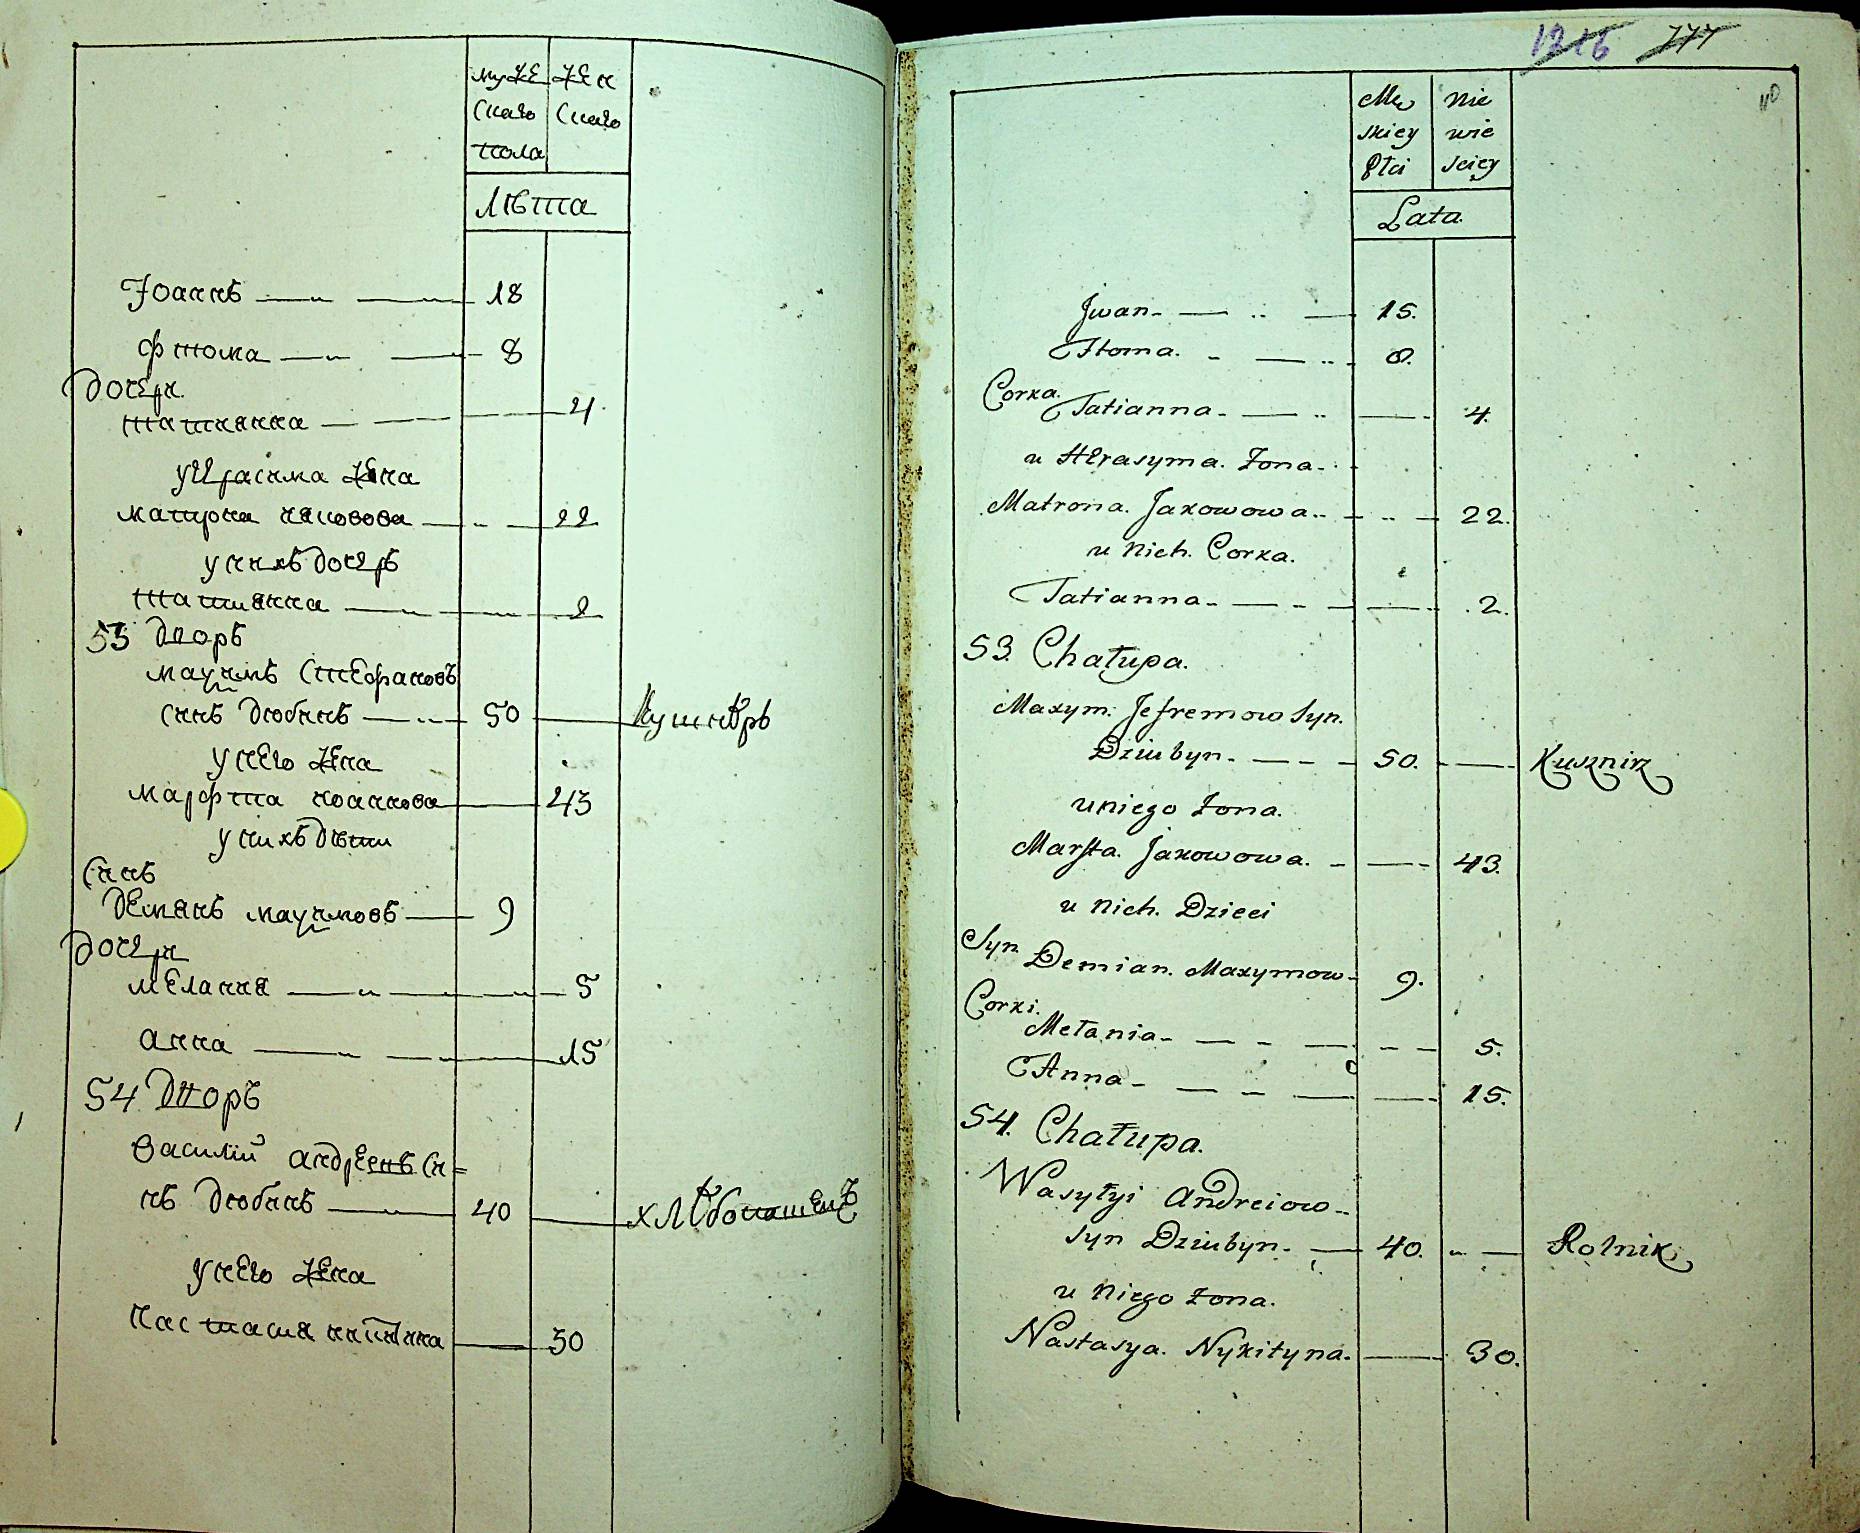 муже жен
скаго скаго
пола
Лѣта
Іоаннъ 18
Фтома 8
дочери
татианна 4
у Ирасима жена
матрона иаковова 22
у нихъ дочерь
татианна 2
53 Дворъ
маѯимъ Стефрановъ
синъ дюбинъ 50 Кушнѣръ
у него жена
марфта иоаннова 43
у нихъ дѣти
Синъ
демянъ маѯимовъ 9
дочери
мелания 5
анна 15
54 Дворъ
Василій андреевъ си=
нъ дюбинъ 40 хлѣбопашецъ
у него жена
настасия никитина 30
1216 777
110
Mę Nie
skiey wie
płci sciey
Lata.
Jwan 15.
Htoma. 8.
Corka.
Tatianna 4.
u Herasyma. Żona
Matrona. Jakowowa 22.
u nich. Corka.
Tatianna 2.
53. Chałupa.
Maxym. Jefremow syn.
Dziubyn 50. Kusznirz
u niego Żona.
Marfta. Jakowowa. 43.
u nich. Dzieci
Syn
Demian. Maxymow 9.
Corki.
Mełania 5.
Anna 15.
54. Chałupa.
Wasyłyi Andreiow
syn Dziubyn 40. Rolnik
u niego żona.
Nastasya. Nykityna. 30.